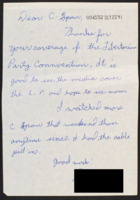 Dear C-Span,
Thanks for
your coverage of the Libertarian
Party Convention. It is
good to see the media cover
the L.P. and hope to see more
I watched more
C-Span that weekend than
anytime since I had the cable
put in.
Good work